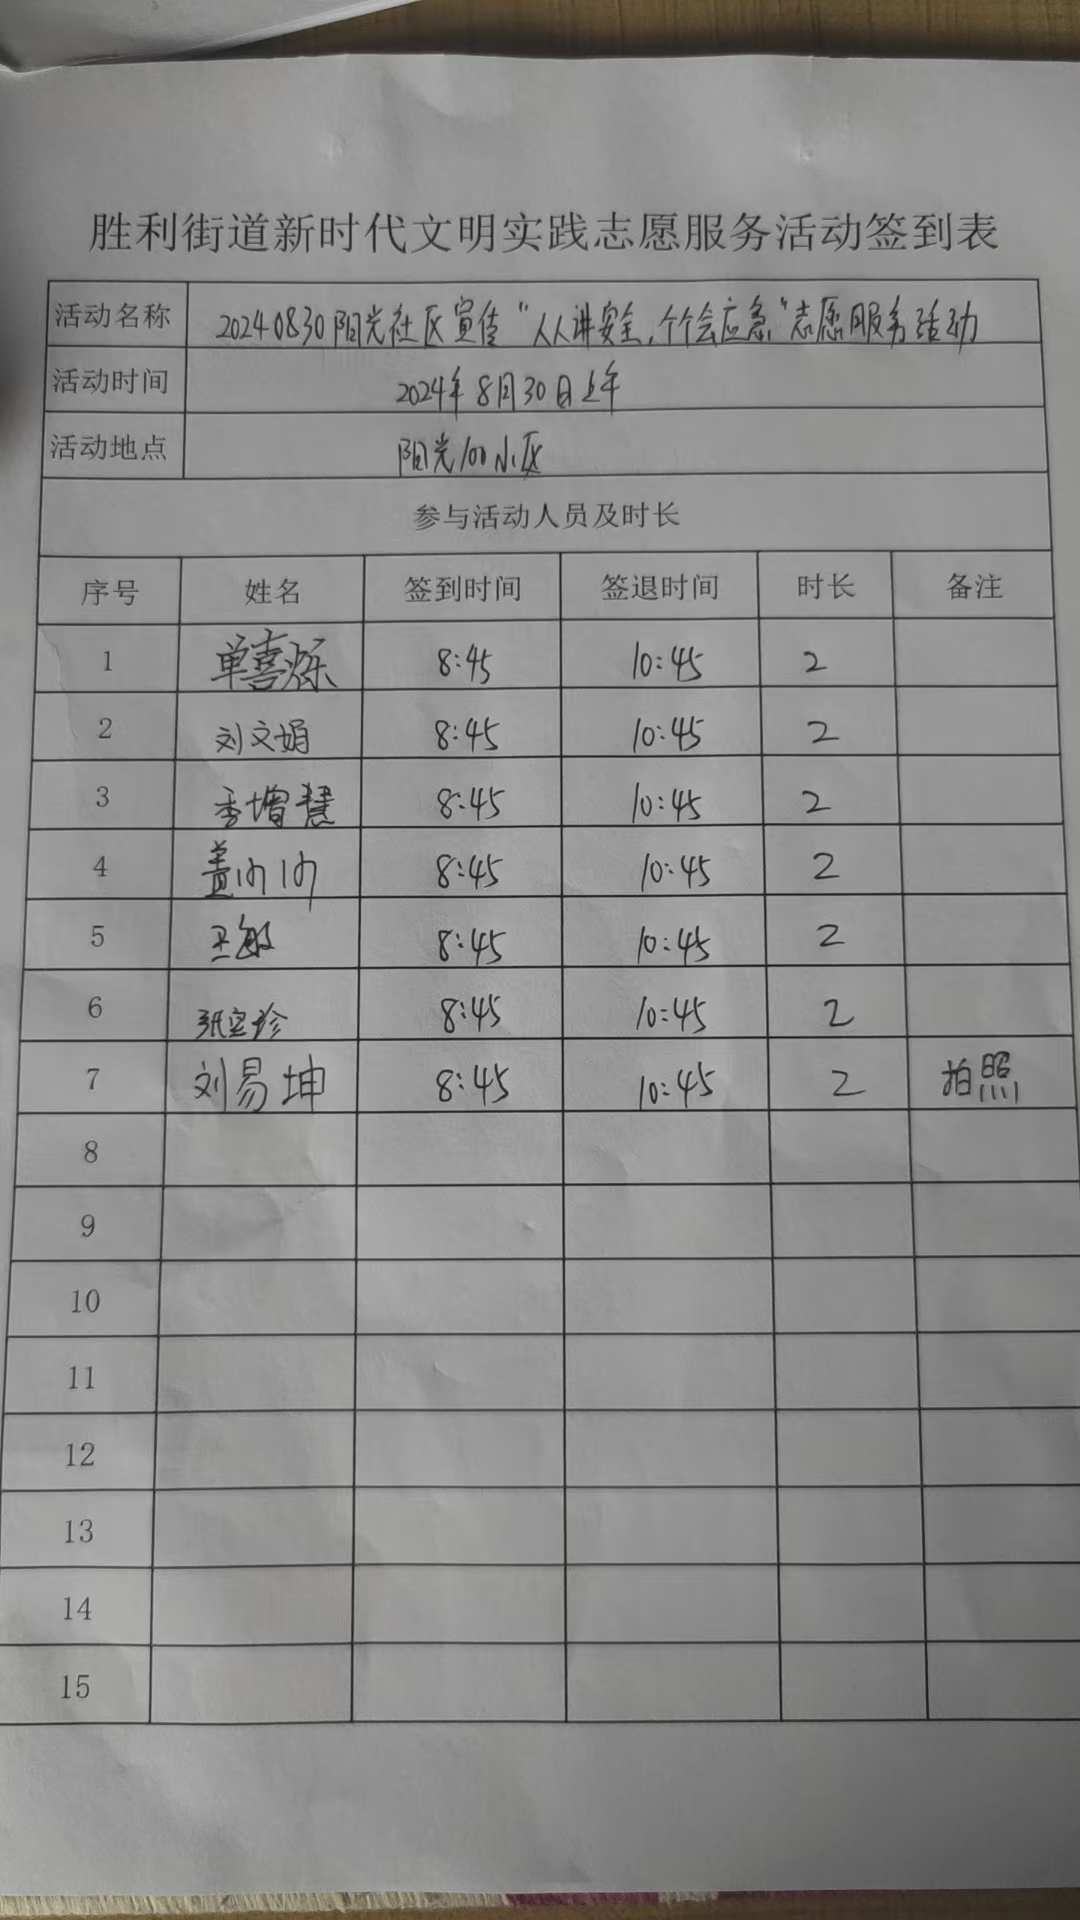 胜利街道新时代文明实践志愿服务活动签到表
活动名称 20240830阳光社区宣传“人人讲安全,个个会应急”志愿服务活动
活动时间 2024年8月30日上午
活动地点 阳光100小区
参与活动人员及时长
序号 姓名 签到时间 签退时间 时长 备注
1 单喜烁 8:45 10:45 2
2 刘文娟 8:45 10:45 2
3 李增慧 8:45 10:45 2
4 盖 8:45 10:45 2
5 王敏 8:45 10:45 2
6 张宝珍 8:45 10:45 2
7 刘易坤 8:45 10:45 2 拍照
8
9
10
11
12
13
14
15